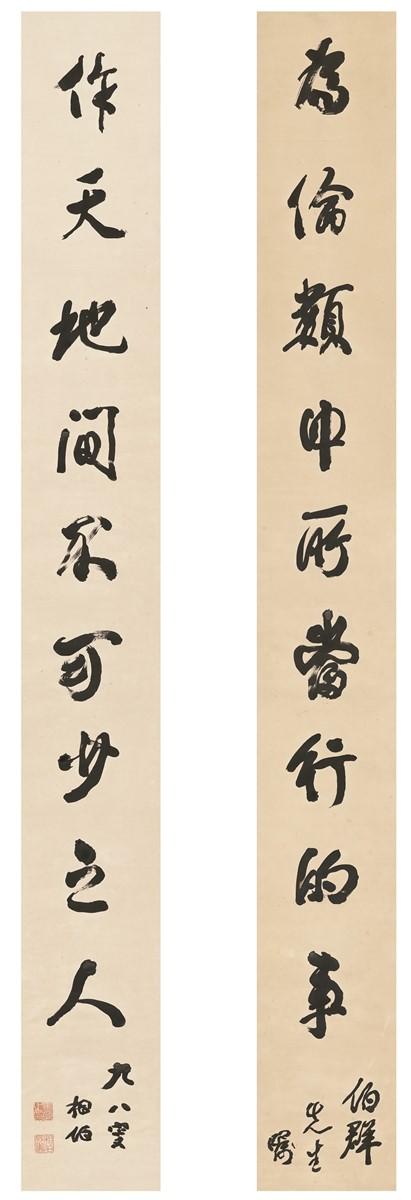 為倫類中所當行的事
伯群
先生
屬
作天地間不可少之人
九八叟
相伯